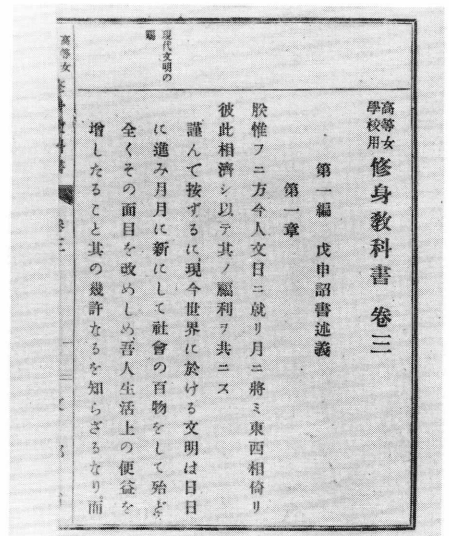 高等女
學校用
修身教科書 卷三
第一編 戊申詔書述義
第一章
朕惟フニ方今人文日ニ就リ月ニ將ミ東西相倚リ
彼此相濟シ以テ其ノ福利ヲ共ニス
謹んで按ずるに、現今世界に於ける文明は日日
に進み月月に新にして社會の百物をして殆ど
全くその面目を改めしめ、吾人生活上の便益を
增したること其の幾許なるを知らざるなり。而
現代文明の
高等女
卷三